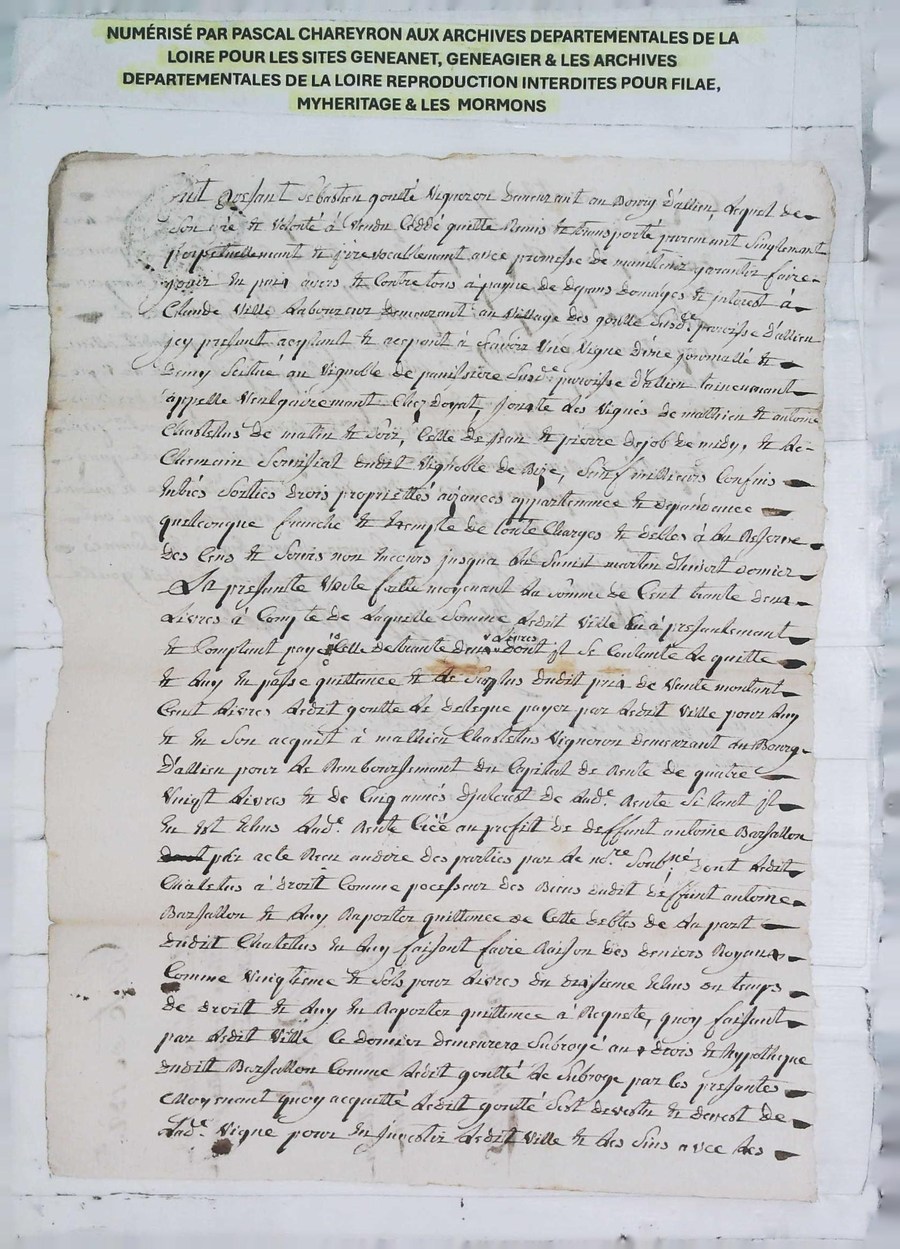 NUMÉRISÉ PAR PASCAL CHAREYRON AUX ARCHIVES DEPARTEMENTALES DE LA
LOIRE POUR LES SITES GENEANET, GENEAGIER & LES ARCHIVES
DEPARTEMENTALES DE LA LOIRE REPRODUCTION INTERDITES POUR FILAE,
MYHERITAGE & LES MORMONS
fut presant Sebastien goutté Vigneron demeurant au Bourg d'allieu, Lequel de
Son gré et Volonté à Vendu Ceddé quitté Remis et transporté purement Simplement
perpetuellement et jrrevocablement avec promesse de maintenir garantir faire
jouir en paix avers et Contre tous à payne de depans domages et jnterest à
Claude Ville Laboureur demeurant au Village des goutte Susd.e paroisse d'allieu
jcy presant acceptant et à Scavoir Une Vigne d'une journallé et
Demy Scittué au Vignoble de panissiere Susd.e paroisse d'allieu
appellé Vulgairement Chez doyat, Joucte des Vignes de mathieu et antoine
Chastelus de matin et Soir, Celle de Jean et pierre dejob de midy, et de
Clemain dudit Vignoble de Bize, Sauf milleurs Confins
Entrés Sorties drois proprietés aizances appartenance et dependance
quelconque franche et Exempte de toute Charges et delles à La Reserve
des Cens et Servis non Encourus jusqua La Saint martin d'hivert dernier
La presante Vente faitte moyenant La Somme de Cent trante deux
Livres à Compte de Laquelle Somme Ledit Ville En à presantement
et Comptant payé Celle de trante deux Livres dont jl Se Contante Le quitte
et Luy En passe quittance et Le Surplus dudit prix de Vente montant
Cent Livres Ledit goutte Le delegue payer par Ledit Ville pour Luy
et En Son acquit à mathieu Chastelus Vigneron demeurant au Bourg
D'allieu pour Le Remboursement du Capital de Rente de quatre
Vingt Livres et de Cinq annés d'jnterest de Lad.e Rente Si tant jl
En est Lad.e Rente Créé au profit de deffunt antoine Barjallon
par acte Recu audoire des parties par Le no.re Soub.né, dont Ledit
Chatelus à droit Comme pocesseur des Biens dudit deffunt antoine
Barjallon et Luy Raporter quittance de Cette debtes de La part
dudit Chatelus En Luy faisant faire Raison des deniers Royaux
Comme Vingtieme et Sols pour Livres du dixsieme Elus en temps
de droitt et Luy En Raporter quittance à Requete, quoy faisant
par Ledit Ville Ce dernier demeurera Subrogé au drois et hypotheque
dudit Barjallon Comme Ledit goutté Le Subroge par Ces presantes
Moyenant quoy acquitté Ledit goutté Sest devestu et devest de
Lad.e Vigne pour En jnvestir Ledit Ville et Les Siens avec Les